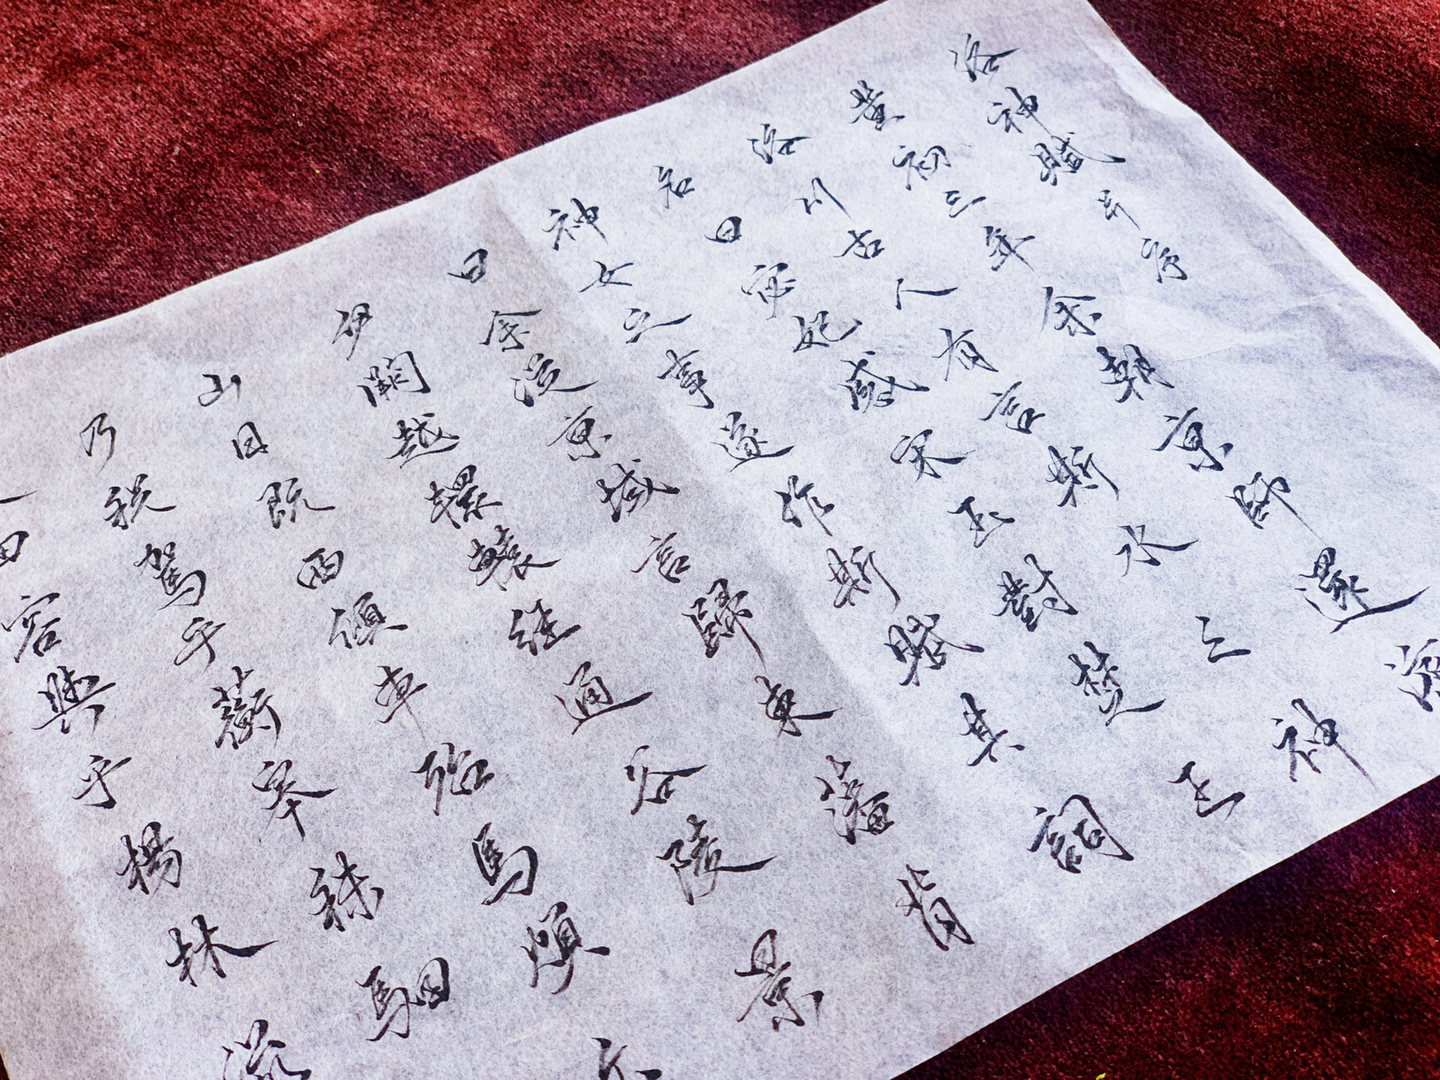 洛神賦并序
黃初三年余朝京師還濟
洛川古人有言斯水之神
名曰宓妃感宋玉對楚王
神女之事遂作斯賦其詞
曰余從京域言歸東藩背
伊闕越轘轅經通谷陵景
山日既西傾車殆馬煩
乃税駕乎蘅皋秣駟
田容與乎楊林流